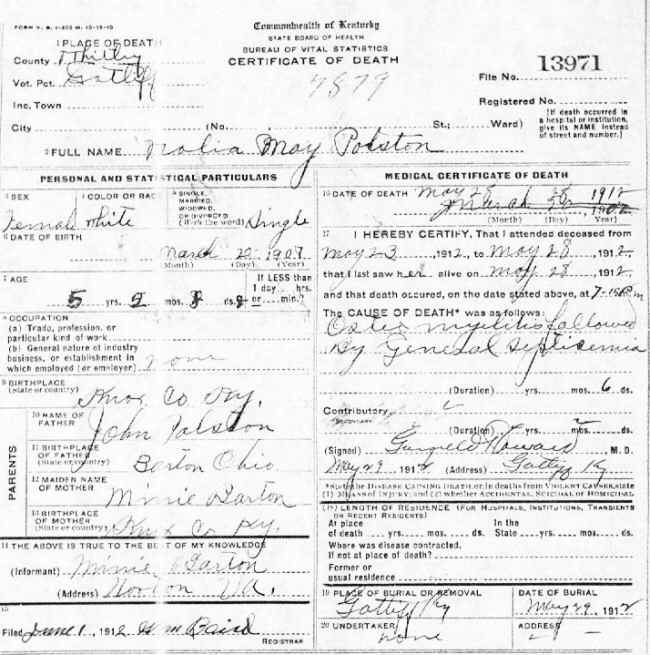 FORM V. S. 1-
Commonwealth of Kentucky
STATE BOARD OF HEALTH
BUREAU OF VITAL STATISTICS
CERTIFICATE OF DEATH
1 PLACE OF DEATH
County Whitley
Vot. Pct. Gatliff
Inc. Town
7879
13971
File No.
Registered No.
City (No. St.; Ward)
(If death occurred in a hospital or institution, give its NAME instead of street and number.)
2 FULL NAME May Polston
PERSONAL AND STATISTICAL PARTICULARS
3 SEX
Female
4 COLOR OR RAC
White
5 SINGLE, MARRIED, WIDOWED, OR DIVORCED (Write the word)
Single
6 DATE OF BIRTH
March 20 1907
(Month) (Day) (Year)
7 AGE
If LESS than 1 day hrs. or min.?
5 yrs. 2 mos. 8 ds.
8 OCCUPATION
(a) Trade, profession, or particular kind of work
(b) General nature of industry business, or establishment in which employed (or employer) none
9 BIRTHPLACE
(State or country)
Knox Co Ky.
PARENTS
10 NAME OF FATHER
John Polston
11 BIRTHPLACE OF FATHER
(State or country)
Ohio
12 MAIDEN NAME OF MOTHER
Minnie Barton
13 BIRTHPLACE OF MOTHER
(State or country)
Knox Co Ky.
14 THE ABOVE IS TRUE TO THE BEST OF MY KNOWLEDGE
(Informant) Minnie Barton
(Address) Va.
15
Filed June 1 1912 Wm Baird
REGISTRAR
MEDICAL CERTIFICATE OF DEATH
16 DATE OF DEATH May 28 1912
(Month) (Day) (Year)
17 I HEREBY CERTIFY, That I attended deceased from
May 23, 1912, to May 28, 1912,
that I last saw her alive on May 28, 1912,
and that death occured, on the date stated above, at 7
The CAUSE OF DEATH* was as follows:
Osteo myelitis followed
By General Septicemia
(Duration) yrs. mos. 6 ds.
Contributory
(Duration) yrs. mos. ds.
(Signed) Howard M. D.
May 29 1912 (Address) Gatliff Ky
*State the DISEASE CAUSING DEATH, or in deaths from VIOLENT CAUSES state (1) MEANS OF INJURY; and (2) whether ACCIDENTAL, SUICIDAL OR HOMICIDAL
18 LENGTH OF RESIDENCE (FOR HOSPITALS, INSTITUTIONS, TRANSIENTS OR RECENT RESIDENTS)
At place of death yrs. mos. ds. In the State yrs. mos. ds.
Where was disease contracted,
If not at place of death?
Former or usual residence
19 PLACE OF BURIAL OR REMOVAL
Gatliff Ky
DATE OF BURIAL
May 29 1912
20 UNDERTAKER
none
ADDRESS